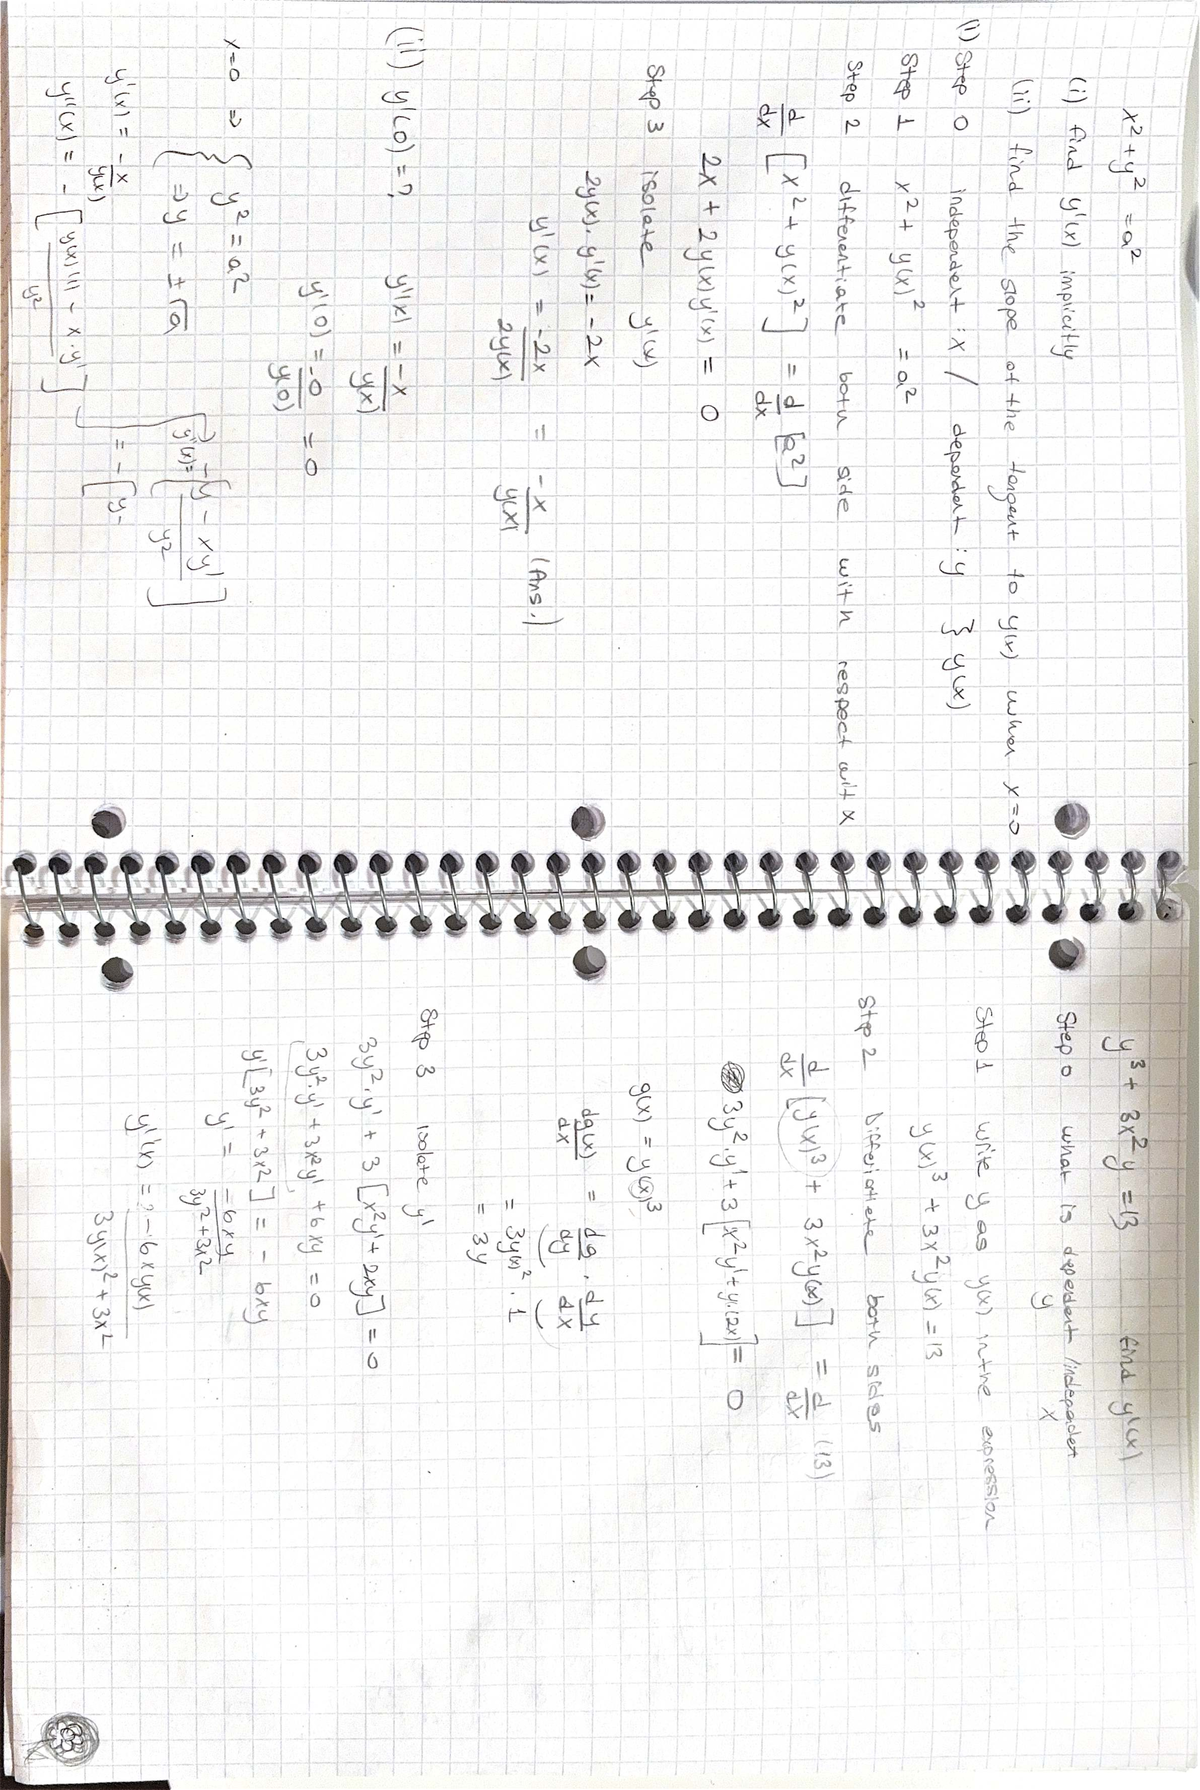 x² + y² = a²
(i) find y'(x) implicitly
(ii) find the slope of the tangent to y(x) when x=0
(i) Step 0 independent : x / dependent : y } y(x)
Step 1 x² + y(x)² = a²
Step 2 differentiate both side with respect wit x
d/dx [x² + y(x)²] = d/dx [a²]
2x + 2y(x)y'(x) = 0
Step 3 isolate y'(x)
2y(x). y'(x) = -2x
y'(x) = -2x/2y(x) = -x/y(x) (Ans.)
(ii) y'(0) = ? y'(x) = -x/y(x)
y'(0) = -0/y(0) = 0
x=0 ⇒ { y² = a²
⇒ y = ±√a
y'(x) = -x/y(x)
y''(x) = - [y(x)(1) - x.y' / y²]
y''(x) = - [y - xy' / y²]
= - [y -
y³ + 3x²y = 13 find y'(x)
Step 0 what is dependent / independet
y x
Step 1 write y as y(x) in the expression
y(x)³ + 3x²y(x) = 13
Step 2 Differiatete both sides
d/dx [y(x)³ + 3x²y(x)] = d/dx (13)
3y².y' + 3[x²y' + y.(2x)] = 0
g(x) = y(x)³
dg(x)/dx = dg/dy . dy/dx
= 3y(x)² . 1
= 3y
Step 3 isolate y'
3y².y' + 3[x²y' + 2xy] = 0
3y².y' + 3x²y' + 6xy = 0
y'[3y² + 3x²] = - 6xy
y' = -6xy/3y²+3x²
y'(x) = -6xy(x)/3y(x)² + 3x²